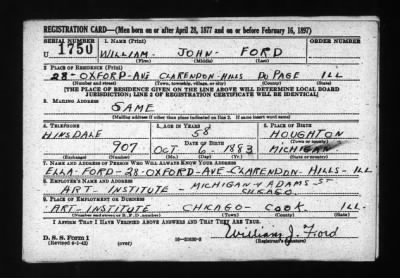 REGISTRATION CARD—(Men born on or after April 28, 1877 and on or before February 16, 1897)
SERIAL NUMBER 1. NAME (Print) ORDER NUMBER
U 1750 WILLIAM - JOHN - FORD
(First) (Middle) (Last)
2. PLACE OF RESIDENCE (Print)
28 - OXFORD - AVE CLARENDON - HILLS DU PAGE ILL
(Number and street) (Town, township, village, or city) (County) (State)
[THE PLACE OF RESIDENCE GIVEN ON THE LINE ABOVE WILL DETERMINE LOCAL BOARD
JURISDICTION; LINE 2 OF REGISTRATION CERTIFICATE WILL BE IDENTICAL]
3. MAILING ADDRESS
SAME
[Mailing address if other than place indicated on line 2. If same insert word same]
4. TELEPHONE 5. AGE IN YEARS 6. PLACE OF BIRTH
HINSDALE 58 HOUGHTON
DATE OF BIRTH (Town or county)
707 OCT 6 - 1883 MICHIGAN
(Exchange) (Number) (Mo.) (Day) (Yr.) (State or country)
7. NAME AND ADDRESS OF PERSON WHO WILL ALWAYS KNOW YOUR ADDRESS
ELLA - FORD - 28 - OXFORD - AVE - CLARENDON - HILLS - ILL
8. EMPLOYER'S NAME AND ADDRESS
ART - INSTITUTE - MICHIGAN & ADAMS - ST
CHICAGO.
9. PLACE OF EMPLOYMENT OR BUSINESS
ART - INSTITUTE CHICAGO - COOK ILL.
(Number and street or R. F. D. number) (Town) (County) (State)
I AFFIRM THAT I HAVE VERIFIED ABOVE ANSWERS AND THAT THEY ARE TRUE.
D. S. S. Form 1 William J. Ford
(Revised 4-1-42) (over) (Registrant's signature)